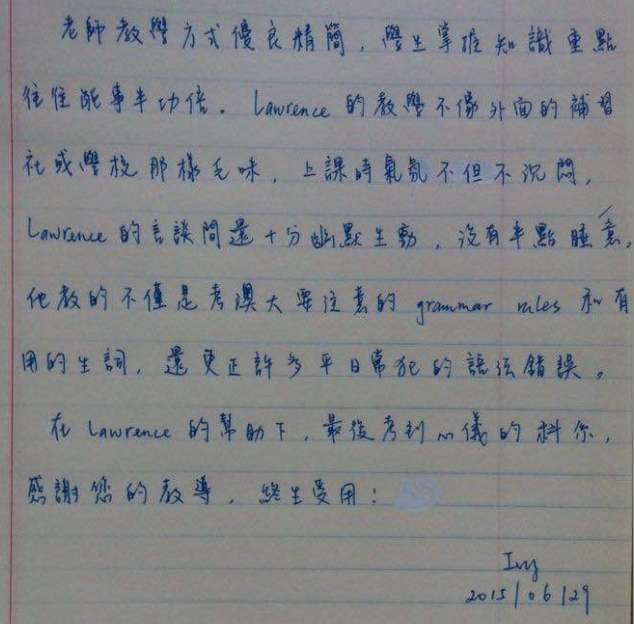 老師教學方式優良精簡，學生掌握知識重點
往往能事半功倍。Lawrence 的教學不像外面的補習
社或學校那樣乏味，上課時氣氛不但不沉悶，
Lawrence 的言談間還十分幽默生動，沒有半點睡意。
他教的不僅是考澳大要注意的 grammar rules 和有
用的生詞，還更正許多平日常犯的語法錯誤。
在 Lawrence 的幫助下，最後考到心儀的科系，
感謝您的教導，終生受用！
Ivy
2015/06/29